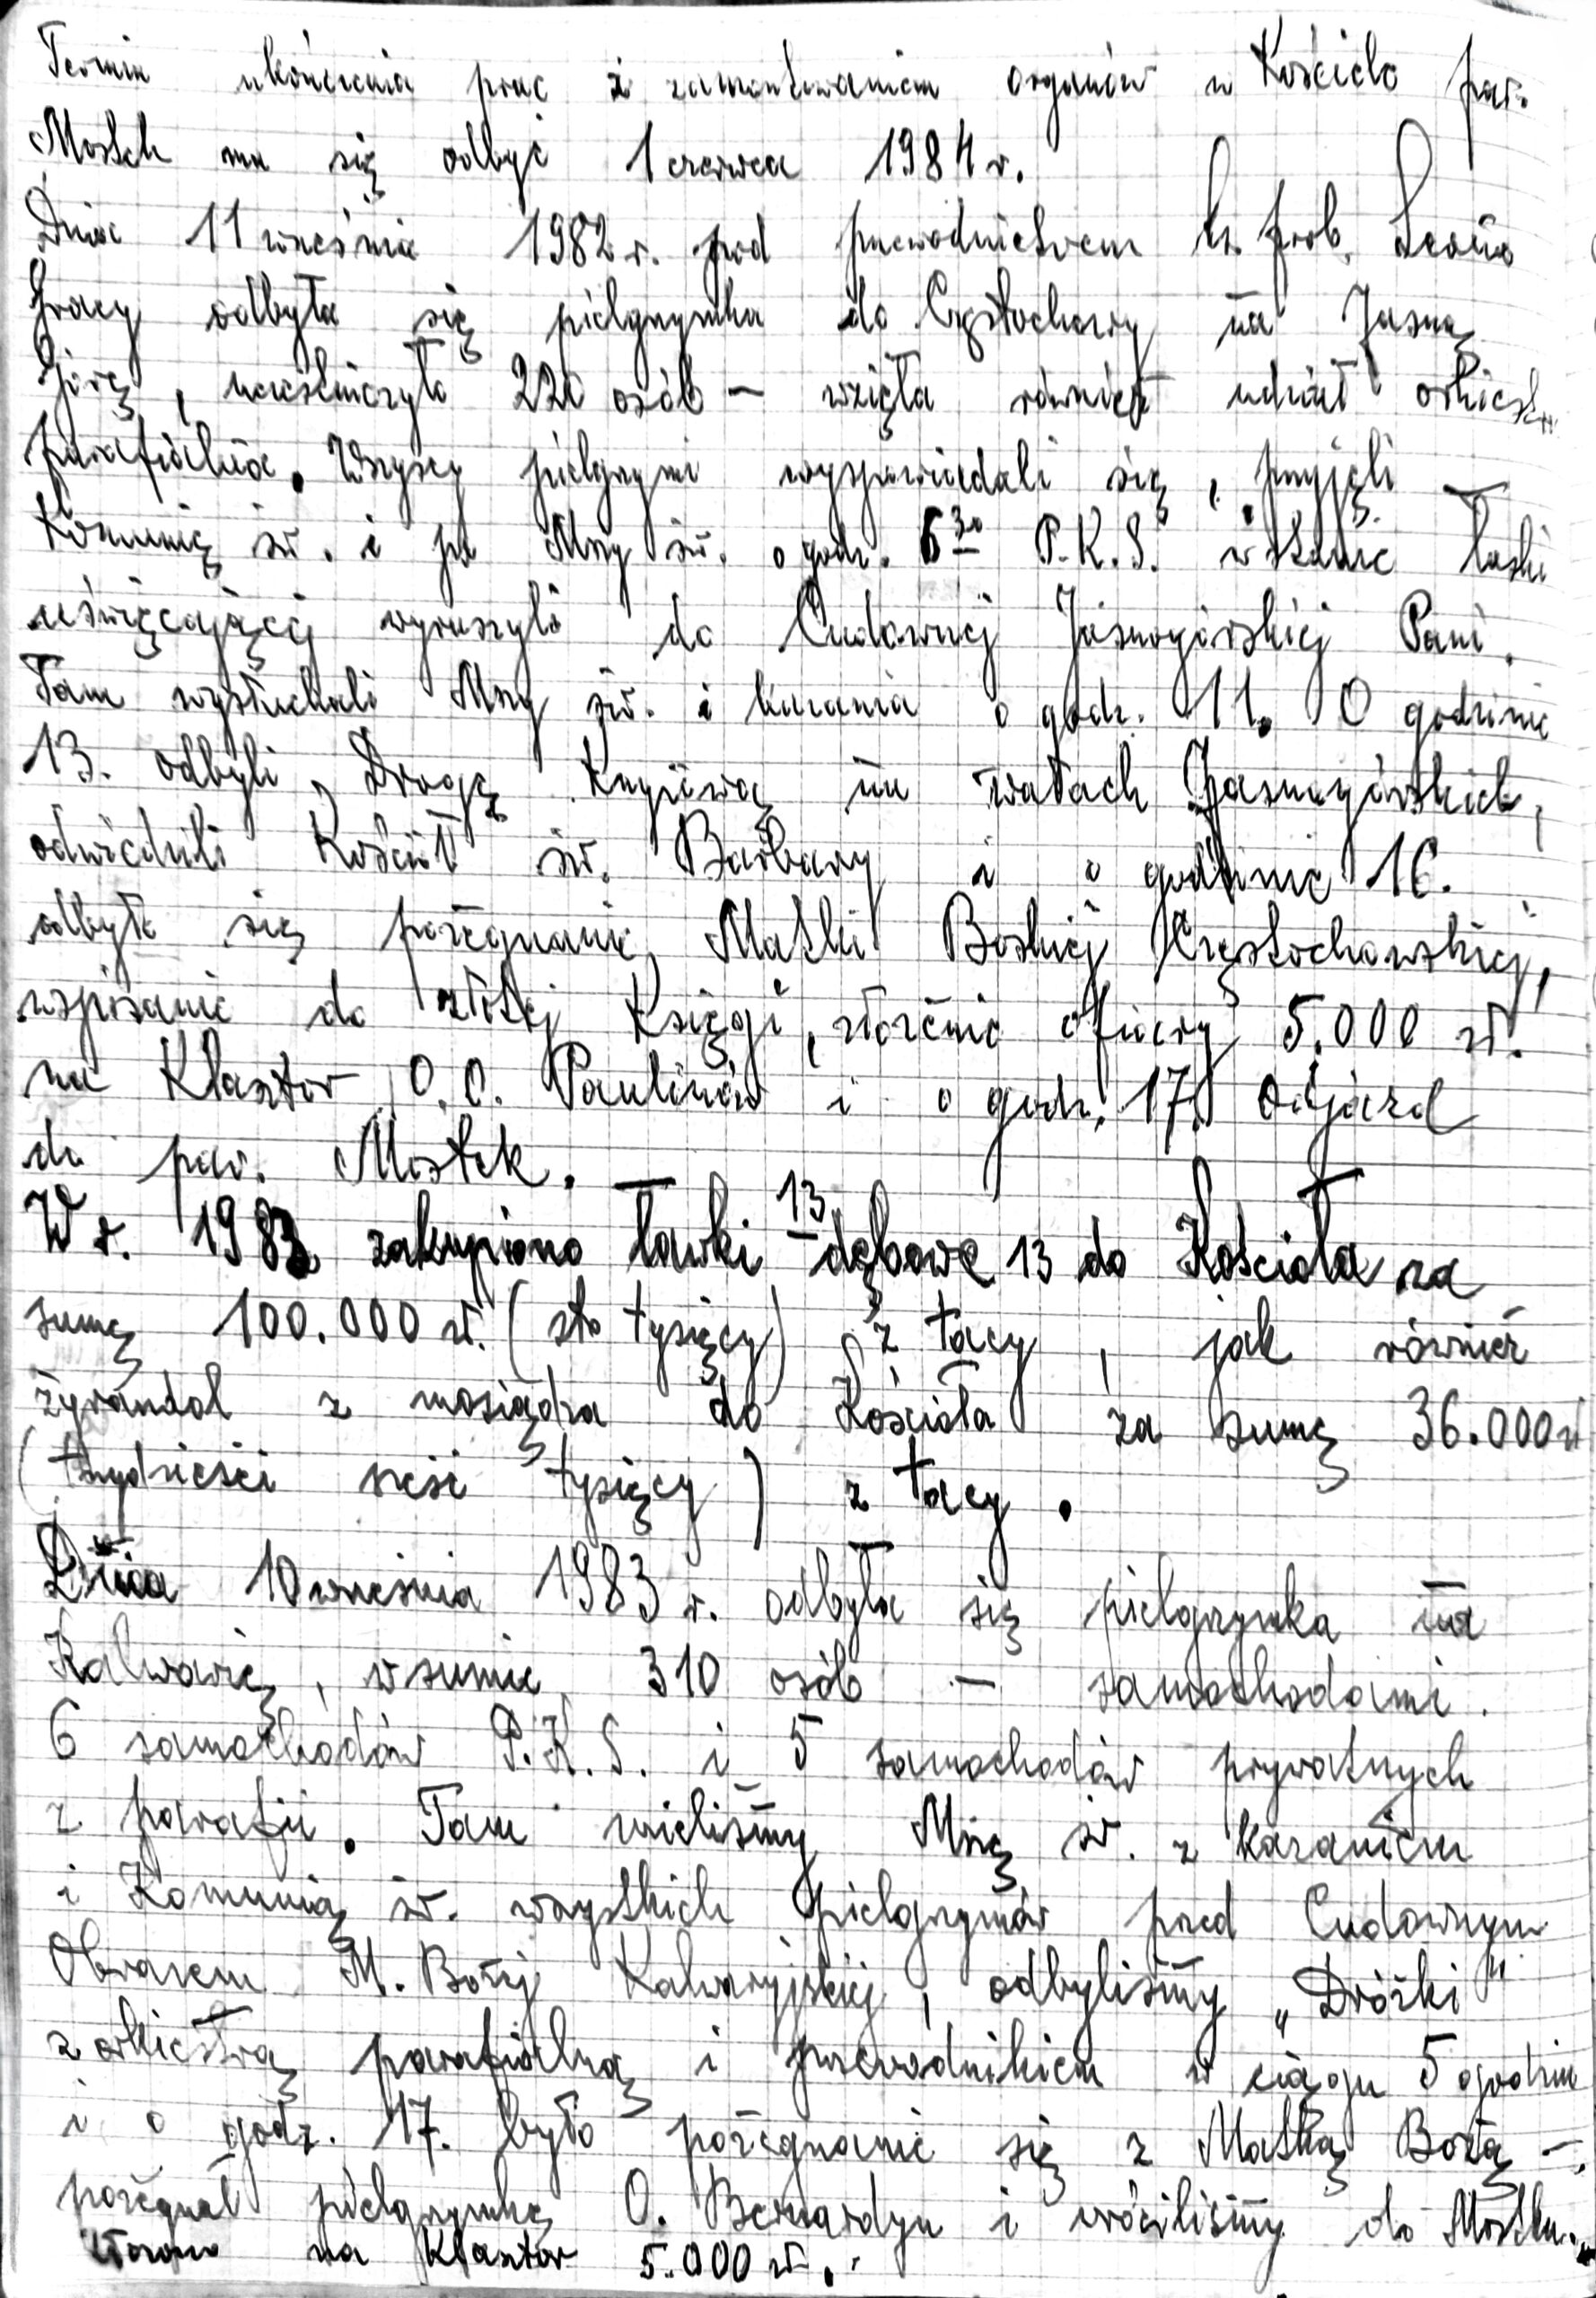 Termin ukończenia prac z zamontowaniem organów w Kościele par.
Mostek ma się odbyć 1 czerwca 1984 r.
Dnia 11 września 1982 r. pod przewodnictwem ks. prob. Leona
Gracy odbyła się pielgrzymka do Częstochowy na Jasną
Górę, uczestniczyło 220 osób – wzięła również udział orkiestra
parafialna. Wszyscy pielgrzymi wyspowiadali się, przyjęli –
Komunię św. i po Mszy św. o godz. 6³⁰ P.K.S. w stanie łaski
uświęcającej wyruszyli do Cudownej Jasnogórskiej Pani.
Tam wysłuchali Mszy św. i kazania o godz. 11. O godzinie
13. odbyli Drogę Krzyżową na wałach Jasnogórskich,
odwiedzili Kościół św. Barbary i o godzinie 16.
odbyło się pożegnanie Matki Boskiej Częstochowskiej,
wpisanie do złotej Księgi, złożenie ofiary 5.000 zł.
na Klasztor O.O. Paulinów i o godz. 17. odjazd
do par. Mostek. –
W r. 1983 zakupiono ławki 13 dębowe 13 do Kościoła za
sumę 100.000 zł. (sto tysięcy) z tacy, jak również
żyrandol z mosiądza do Kościoła za sumę 36.000 zł
(trzydzieści sześć tysięcy) z tacy.
Dnia 10 września 1983 r. odbyła się pielgrzymka na
Kalwarię, w sumie 310 osób – samochodami.
6 samochodów P.K.S. i 5 samochodów prywatnych
z parafii. Tam mieliśmy Mszę św. z kazaniem
i Komunią św. wszystkich pielgrzymów przed Cudownym
Obrazem M. Bożej Kalwaryjskiej, odbyliśmy „Dróżki"
z orkiestrą parafialną i przewodnikiem w ciągu 5 godzin
i o godz. 17. było pożegnanie się z Matką Bożą –,
pożegnał pielgrzymkę O. Bernardyn i wróciliśmy do Mostku.
Złożono na Klasztor 5.000 zł.